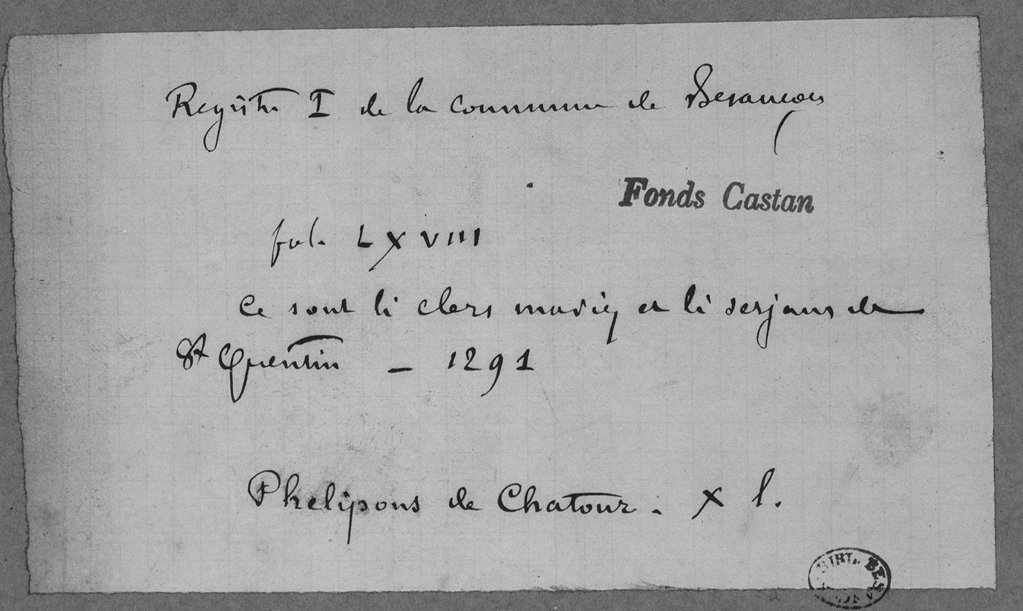 Registre I de la commune de Besançon
Fonds Castan
fol. LXVIII
Ce sont li clers mariez et li serjans de
St Quentin — 1291
Phelipons de Chatour. X l.
BIBL. BES